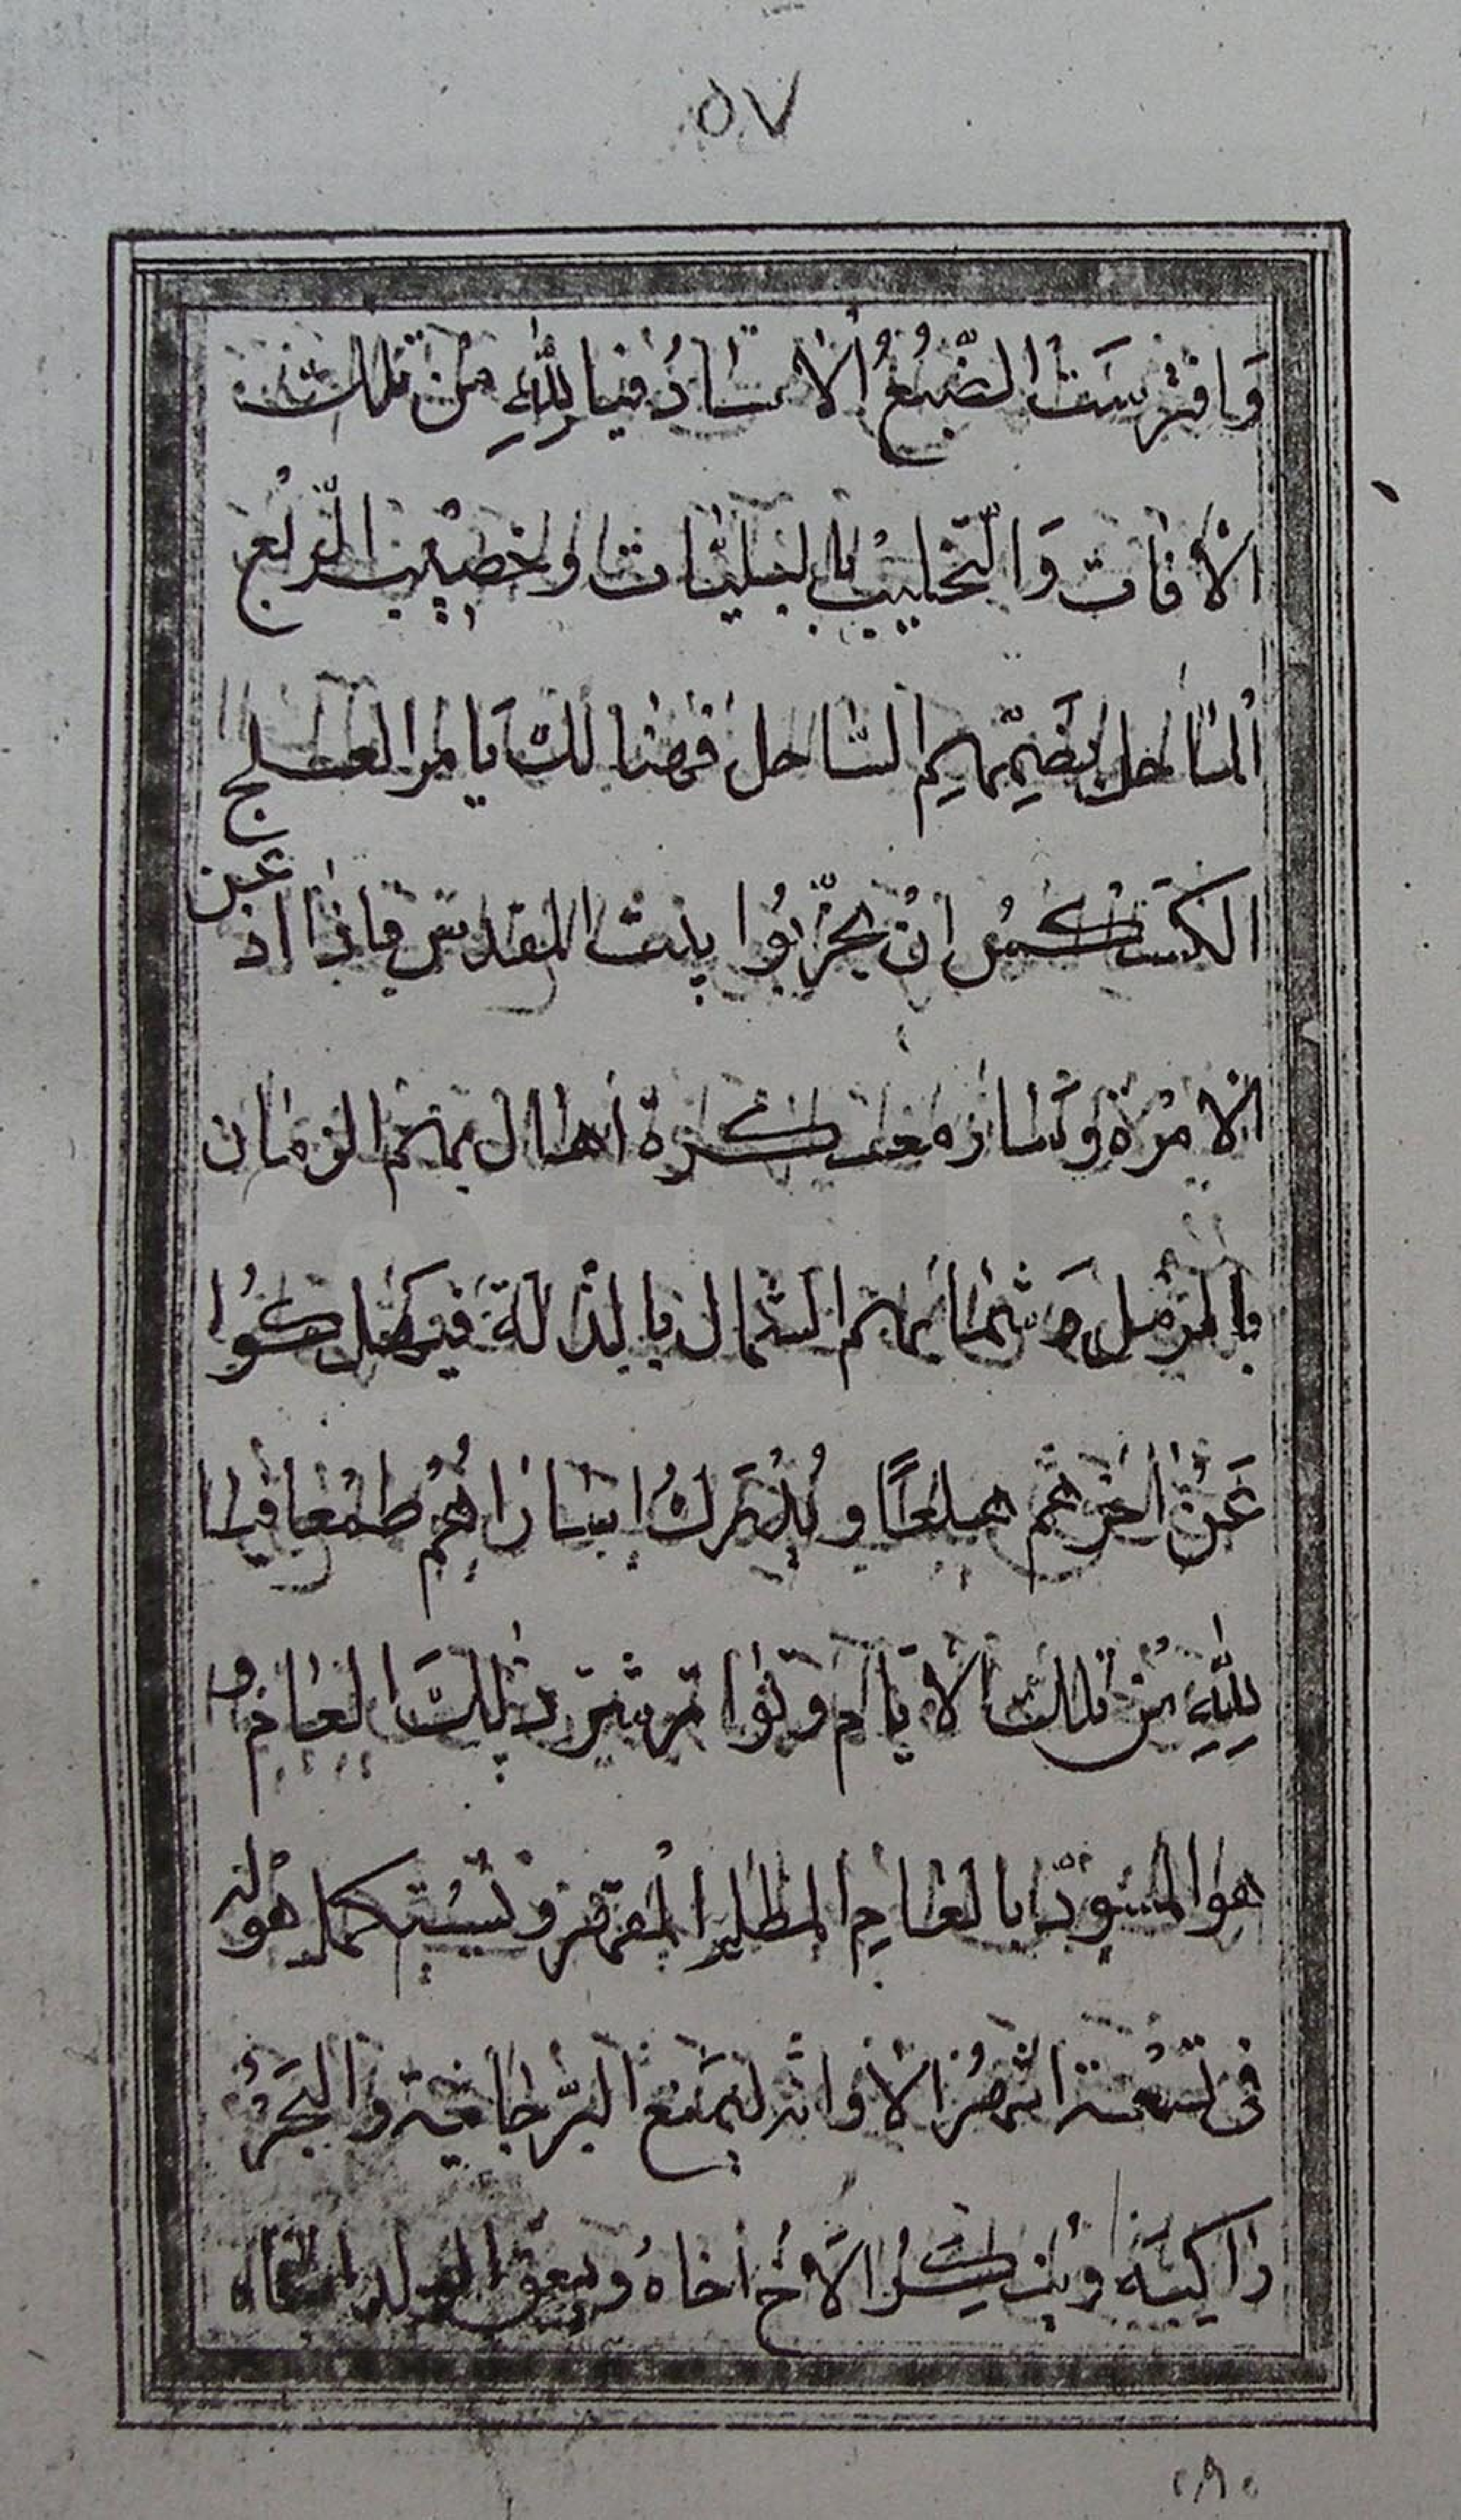 ٥٧
وَافترسَت الضَّبُعُ الاسادُ فيا لِلّٰهِ من تلك
الآفات وَالتجلبب بالبليات واخصب الربع
الساحل الساحل فهنالك يامر العلج
الكسكس ان يخرّبُوا بيت المقدس فاذا اذعن
الامرة وسار معسكره اهال بهم الزمان
بالرمل وشمائهم الشمال بالذلة فيهلكوا
عَنْ اخرهم هلعًا ويُدْرَكُ اسارَاهُم طمعا فيا
لِلّٰهِ من تلك الايام وتواتر شر ذلِكَ العام و
هو المسود بالعام المظلم المقمقر ويستكمل هوله
فى تسعة اشهر الا وانه ليمنع البرّ جانبه والبحرُ
راكبه وينكر الاخ اخاهُ ويعق الولد اباه